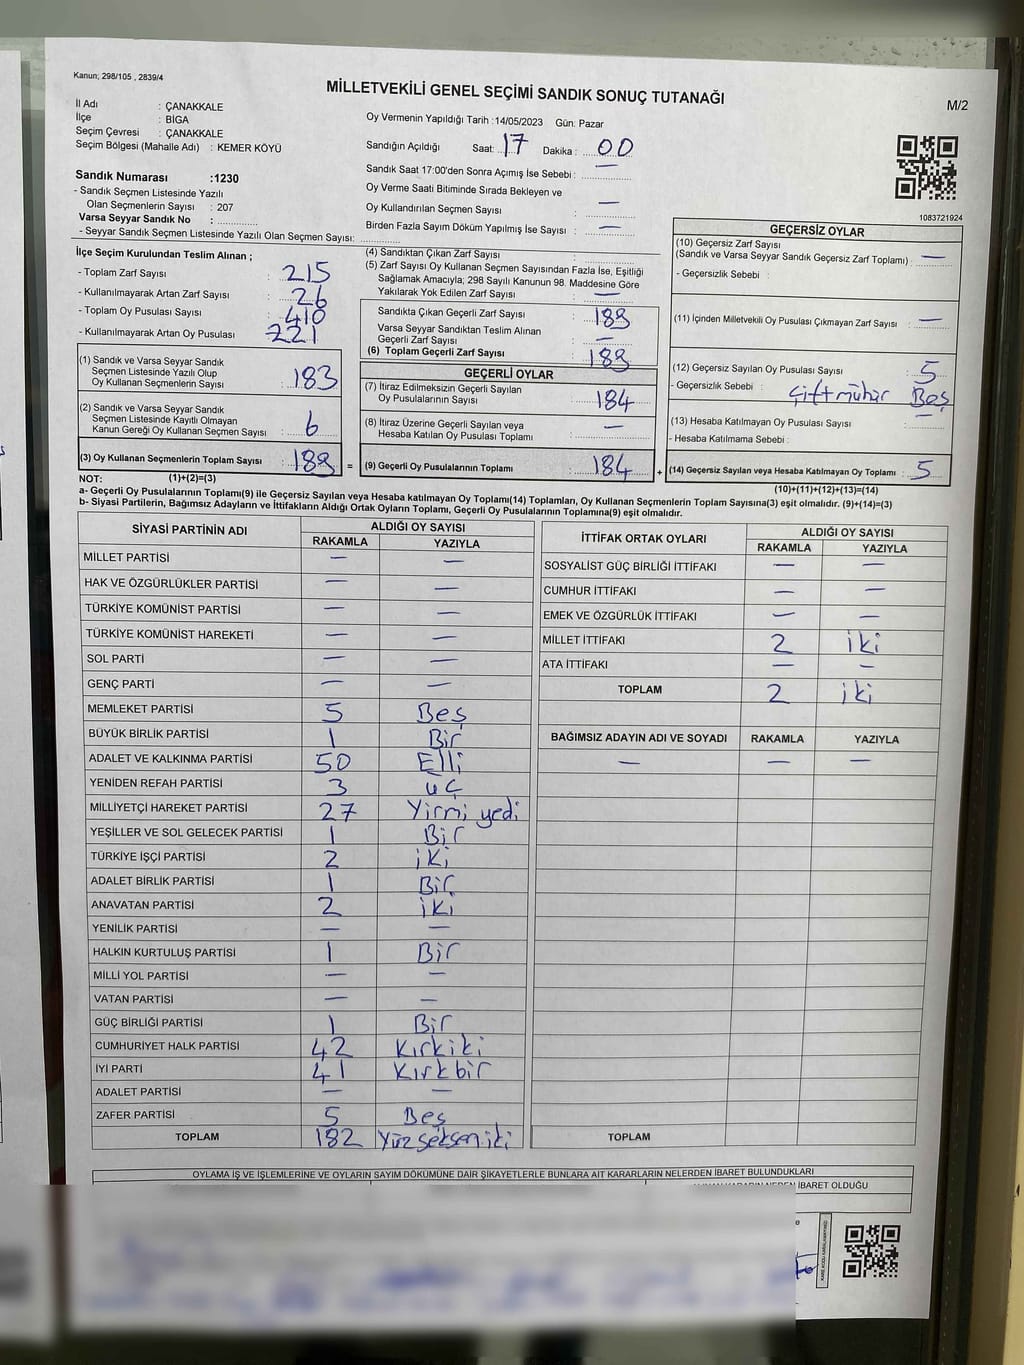 Kanun; 298/105 , 2839/4
MİLLETVEKİLİ GENEL SEÇİMİ SANDIK SONUÇ TUTANAĞI
M/2
İl Adı : ÇANAKKALE
İlçe : BİGA
Seçim Çevresi : ÇANAKKALE
Seçim Bölgesi (Mahalle Adı) : KEMER KÖYÜ
Oy Vermenin Yapıldığı Tarih :14/05/2023 Gün: Pazar
Sandığın Açıldığı Saat: 17 Dakika : 00
Sandık Saat 17:00'den Sonra Açılmış İse Sebebi : —
Oy Verme Saati Bitiminde Sırada Bekleyen ve
Oy Kullandırılan Seçmen Sayısı : —
Birden Fazla Sayım Döküm Yapılmış İse Sayısı : —
Sandık Numarası :1230
- Sandık Seçmen Listesinde Yazılı
Olan Seçmenlerin Sayısı : 207
Varsa Seyyar Sandık No :
- Seyyar Sandık Seçmen Listesinde Yazılı Olan Seçmen Sayısı:
1083721924
İlçe Seçim Kurulundan Teslim Alınan ;
- Toplam Zarf Sayısı : 215
- Kullanılmayarak Artan Zarf Sayısı : 26
- Toplam Oy Pusulası Sayısı : 410
- Kullanılmayarak Artan Oy Pusulası : 221
(1) Sandık ve Varsa Seyyar Sandık
Seçmen Listesinde Yazılı Olup
Oy Kullanan Seçmenlerin Sayısı : 183
(2) Sandık ve Varsa Seyyar Sandık
Seçmen Listesinde Kayıtlı Olmayan
Kanun Gereği Oy Kullanan Seçmen Sayısı : 6
(3) Oy Kullanan Seçmenlerin Toplam Sayısı : 189
(4) Sandıktan Çıkan Zarf Sayısı :
(5) Zarf Sayısı Oy Kullanan Seçmen Sayısından Fazla İse, Eşitliği
Sağlamak Amacıyla; 298 Sayılı Kanunun 98. Maddesine Göre
Yakılarak Yok Edilen Zarf Sayısı : —
Sandıkta Çıkan Geçerli Zarf Sayısı : 189
Varsa Seyyar Sandıktan Teslim Alınan
Geçerli Zarf Sayısı : —
(6) Toplam Geçerli Zarf Sayısı : 189
GEÇERLİ OYLAR
(7) İtiraz Edilmeksizin Geçerli Sayılan
Oy Pusulalarının Sayısı : 184
(8) İtiraz Üzerine Geçerli Sayılan veya
Hesaba Katılan Oy Pusulası Toplamı : —
= (9) Geçerli Oy Pusulalarının Toplamı : 184
GEÇERSİZ OYLAR
(10) Geçersiz Zarf Sayısı
(Sandık ve Varsa Seyyar Sandık Geçersiz Zarf Toplamı) : —
- Geçersizlik Sebebi :
(11) İçinden Milletvekili Oy Pusulası Çıkmayan Zarf Sayısı : —
(12) Geçersiz Sayılan Oy Pusulası Sayısı : 5
- Geçersizlik Sebebi : Çift mühür Beş
(13) Hesaba Katılmayan Oy Pusulası Sayısı : —
- Hesaba Katılmama Sebebi :
+ (14) Geçersiz Sayılan veya Hesaba Katılmayan Oy Toplamı : 5
NOT: (1)+(2)=(3)
(10)+(11)+(12)+(13)=(14)
a- Geçerli Oy Pusulalarının Toplamı(9) ile Geçersiz Sayılan veya Hesaba katılmayan Oy Toplamı(14) Toplamları, Oy Kullanan Seçmenlerin Toplam Sayısına(3) eşit olmalıdır. (9)+(14)=(3)
b- Siyasi Partilerin, Bağımsız Adayların ve İttifakların Aldığı Ortak Oyların Toplamı, Geçerli Oy Pusulalarının Toplamına(9) eşit olmalıdır.
SİYASİ PARTİNİN ADI ALDIĞI OY SAYISI
RAKAMLA YAZIYLA
MİLLET PARTİSİ — —
HAK VE ÖZGÜRLÜKLER PARTİSİ — —
TÜRKİYE KOMÜNİST PARTİSİ — —
TÜRKİYE KOMÜNİST HAREKETİ — —
SOL PARTİ — —
GENÇ PARTİ — —
MEMLEKET PARTİSİ 5 Beş
BÜYÜK BİRLİK PARTİSİ 1 Bir
ADALET VE KALKINMA PARTİSİ 50 Elli
YENİDEN REFAH PARTİSİ 3 üç
MİLLİYETÇİ HAREKET PARTİSİ 27 Yirmi yedi
YEŞİLLER VE SOL GELECEK PARTİSİ 1 Bir
TÜRKİYE İŞÇİ PARTİSİ 2 iki
ADALET BİRLİK PARTİSİ 1 Bir
ANAVATAN PARTİSİ 2 iki
YENİLİK PARTİSİ — —
HALKIN KURTULUŞ PARTİSİ 1 Bir
MİLLİ YOL PARTİSİ — —
VATAN PARTİSİ — —
GÜÇ BİRLİĞİ PARTİSİ 1 Bir
CUMHURİYET HALK PARTİSİ 42 Kırkiki
İYİ PARTİ 41 Kırkbir
ADALET PARTİSİ — —
ZAFER PARTİSİ 5 Beş
TOPLAM 182 Yüz seksen iki
İTTİFAK ORTAK OYLARI ALDIĞI OY SAYISI
RAKAMLA YAZIYLA
SOSYALİST GÜÇ BİRLİĞİ İTTİFAKI — —
CUMHUR İTTİFAKI — —
EMEK VE ÖZGÜRLÜK İTTİFAKI — —
MİLLET İTTİFAKI 2 iki
ATA İTTİFAKI — —
TOPLAM 2 iki
BAĞIMSIZ ADAYIN ADI VE SOYADI RAKAMLA YAZIYLA
— — —
TOPLAM
OYLAMA İŞ VE İŞLEMLERİNE VE OYLARIN SAYIM DÖKÜMÜNE DAİR ŞİKAYETLERLE BUNLARA AİT KARARLARIN NELERDEN İBARET BULUNDUKLARI
İBARET OLDUĞU